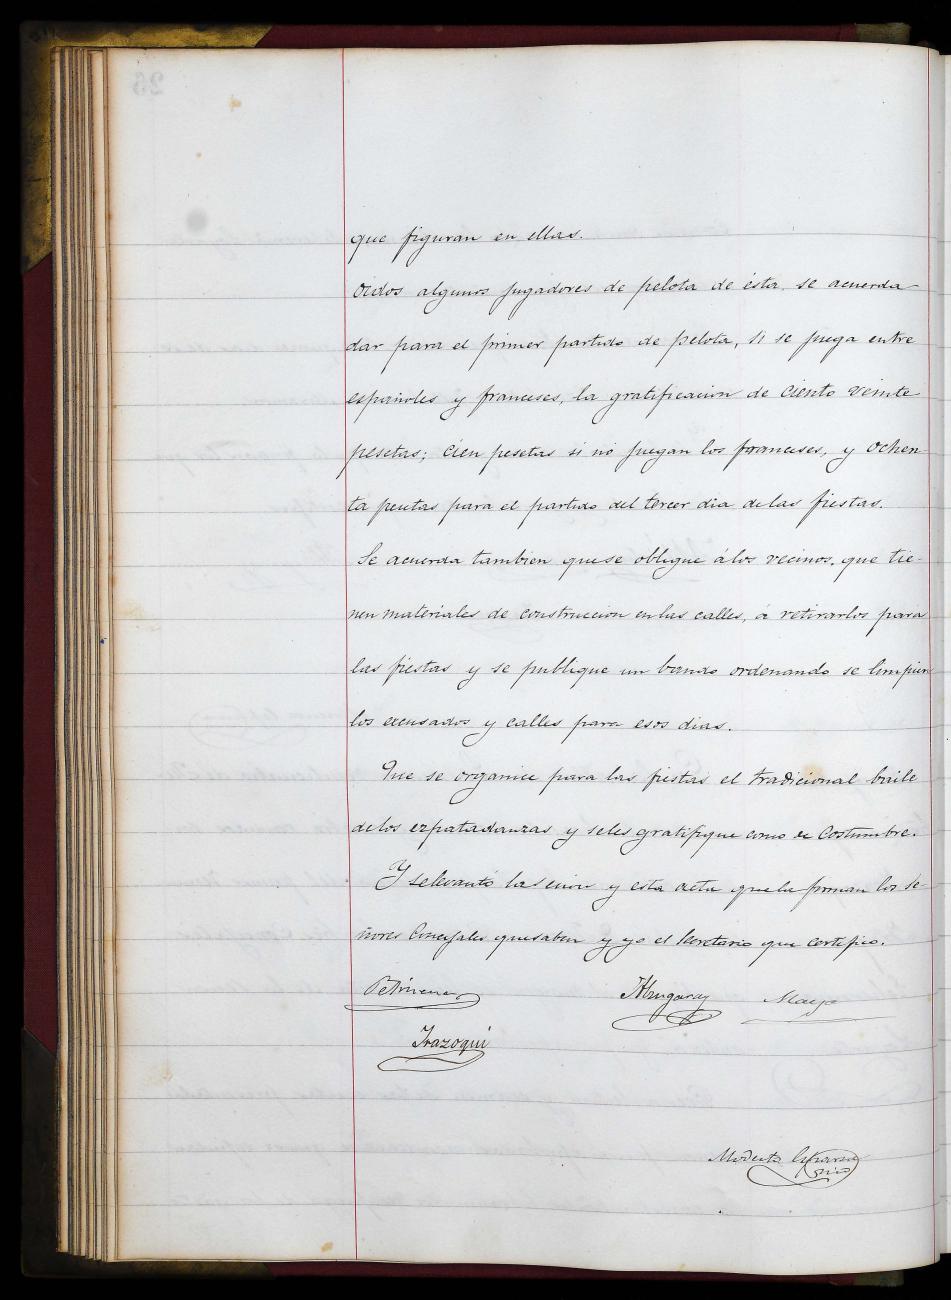 que figuran en ellas.
Oidos algunos jugadores de pelota de ésta se acuerda
dar para el primer partido de pelota, si se juega entre
españoles y franceses, la gratificacion de ciento veinte
pesetas; cien pesetas si no juegan los franceses, y ochen-
ta pesetas para el partido del tercer dia de las fiestas.
Se acuerda tambien que se obligue á los vecinos, que tie-
nen materiales de construccion en las calles, á retirarlos para
las fiestas y se publique un bando ordenando se limpien
los escusados y calles para esos dias.
Que se organice para las fiestas el tradicional baile
de los ezpatadanzas y se les gratifique como es costumbre.
Y se levantó la sesion y esta acta que la firman los se-
ñores Concejales que saben y yo el Secretario que certifico.
Petrirena Abugaray Maya
Irazoqui
Modesto